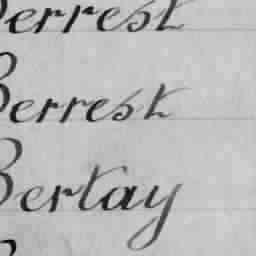 Berrest
Berrest
Bertay